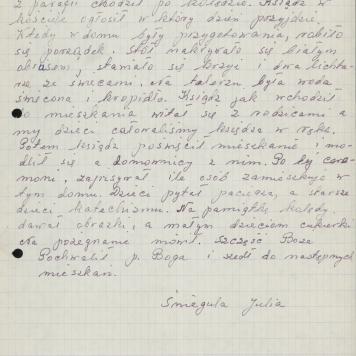 z parafi chodził po kolędzie. Ksiądz w
kościele ogłosił w który dzień przyjdzie.
Wtedy w domu były przygotowania, robiło
się porządek. Stół nakrywało się białym
obrusem, stawiało się krzyż i dwa lichta-
rze ze świecami, na talerzu była woda
święcona i kropidło. Ksiądz jak wchodził
do mieszkania witał się z rodzicami a
my dzieci całowaliśmy księdza w rękę.
Potem ksiądz poświęcił mieszkanie i mo-
dlił się a domownicy z nim. Po tej cere-
moni, zapisywał ile osób zamieszkuje w
tym domu. Dzieci pytał pacieża, a starsze
dzieci katechizmu. Na pamiątkę kolędy
dawał obrazki, a małym dzieciom cukierki
Na pożegnanie mówił. Szczęść Boże
Pochwalił p. Boga i szedł do następnych
mieszkań.
Śmieguła Julia